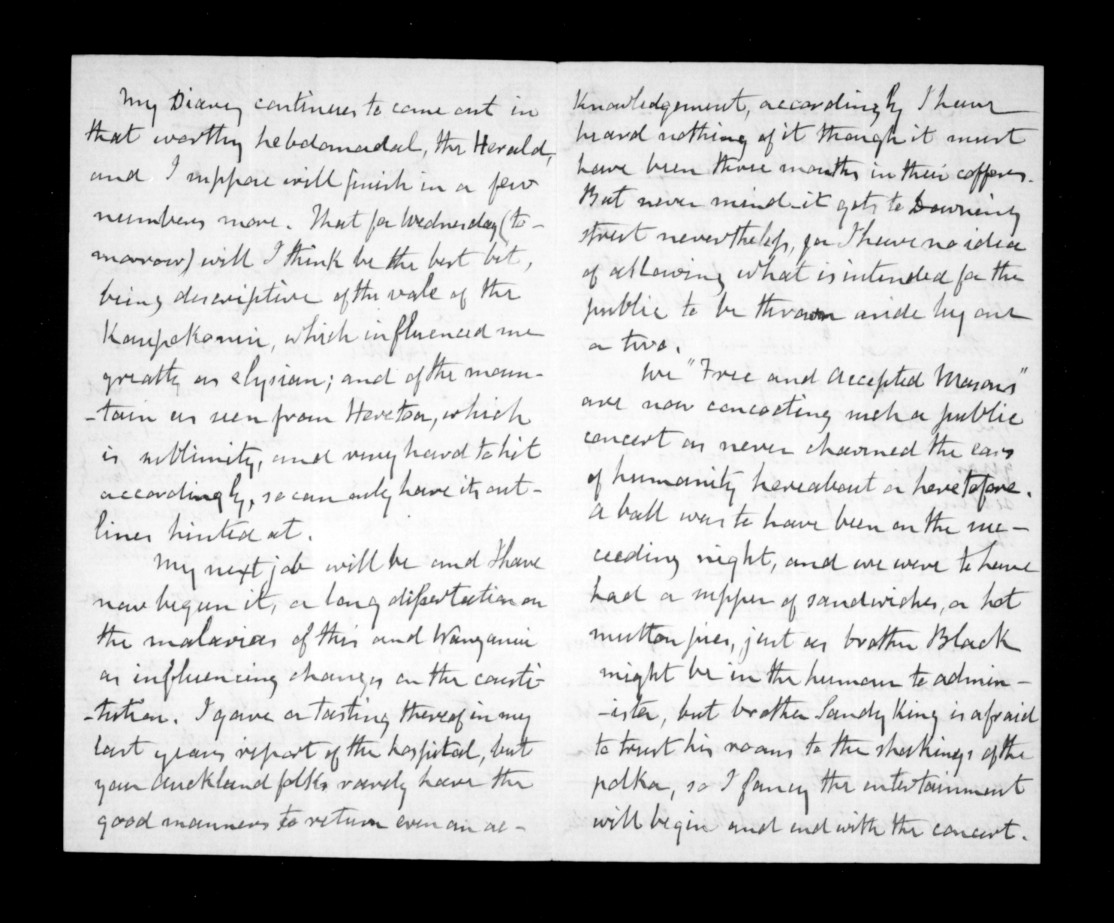 My Diary continues to come out in
that worthy hebdomadal, the Herald,
and I suppose will finish in a few
numbers more. That for Wednesday (to-
morrow) will I think be the best bit,
being descriptive of the vale of the
Kaupokonui, which influenced me
greatly as elysian; and of the moun-
-tain as seen from Heretoa, which
is sublimity, and very hard to hit
accordingly, so can only have its out-
lines hinted at.
My next job will be and I have
now begun it, a long dissertation on
the malarias of this and Wanganui
as influencing changes on the consti-
-tution. I gave a tasting thereof in my
last years report of the hospital, but
your Auckland folks rarely have the
good manners to return even an ac-
knowledgement, accordingly I have
heard nothing of it though it must
have been three months in their coffers.
But never mind it gets to Downing
street nevertheless, for I have no idea
of allowing what is intended for the
public to be thrown aside by one
or two.
We "Free and Accepted Masons"
are now concocting such a public
concert as never charmed the ears
of humanity hereabout or heretofore.
A ball was to have been on the suc-
ceeding night, and we were to have
had a supper of sandwiches, or hot
mutton pies, just as brother Black
might be in the humour to admin-
-ister, but brother Sandy King is afraid
to trust his rooms to the shakings of the
polka, so I fancy the entertainment
will begin and end with the concert.